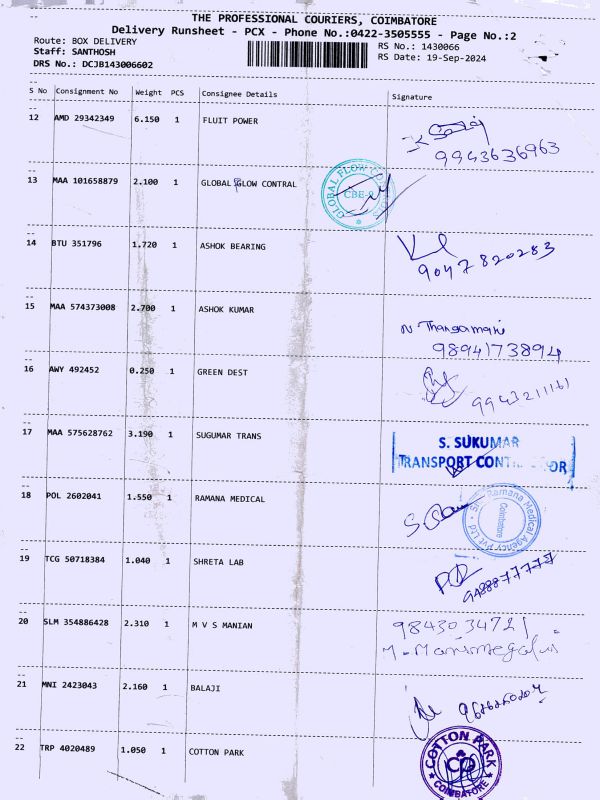 THE PROFESSIONAL COURIERS, COIMBATORE
Delivery Runsheet - PCX - Phone No.:0422-3505555 - Page No.:2
Route: BOX DELIVERY
Staff: SANTHOSH
DRS No.: DCJB143006602
RS No.: 1430066
RS Date: 19-Sep-2024
S No Consignment No Weight PCS Consignee Details Signature
12 AMD 29342349 6.150 1 FLUIT POWER
9943636963
13 MAA 101658879 2.100 1 GLOBAL GLOW CONTRAL
GLOBAL FLOW CONTROLS
CBE-9
14 BTU 351796 1.720 1 ASHOK BEARING
9047820283
15 MAA 574373008 2.700 1 ASHOK KUMAR
N. Thangamani
9894173894
16 AWY 492452 0.250 1 GREEN DEST
9943211161
17 MAA 575628762 3.190 1 SUGUMAR TRANS
S. SUKUMAR
TRANSPORT CONTRACTOR
18 POL 2602041 1.550 1 RAMANA MEDICAL
Sri Ramana Medical Agency Pvt Ltd
Coimbatore
19 TCG 50718384 1.040 1 SHRETA LAB
9488877777
20 SLM 354886428 2.310 1 M V S MANIAN
9843034721
M. Manimegalai
21 MNI 2423043 2.160 1 BALAJI
22 TRP 4020489 1.050 1 COTTON PARK
COTTON PARK
CP
COIMBATORE